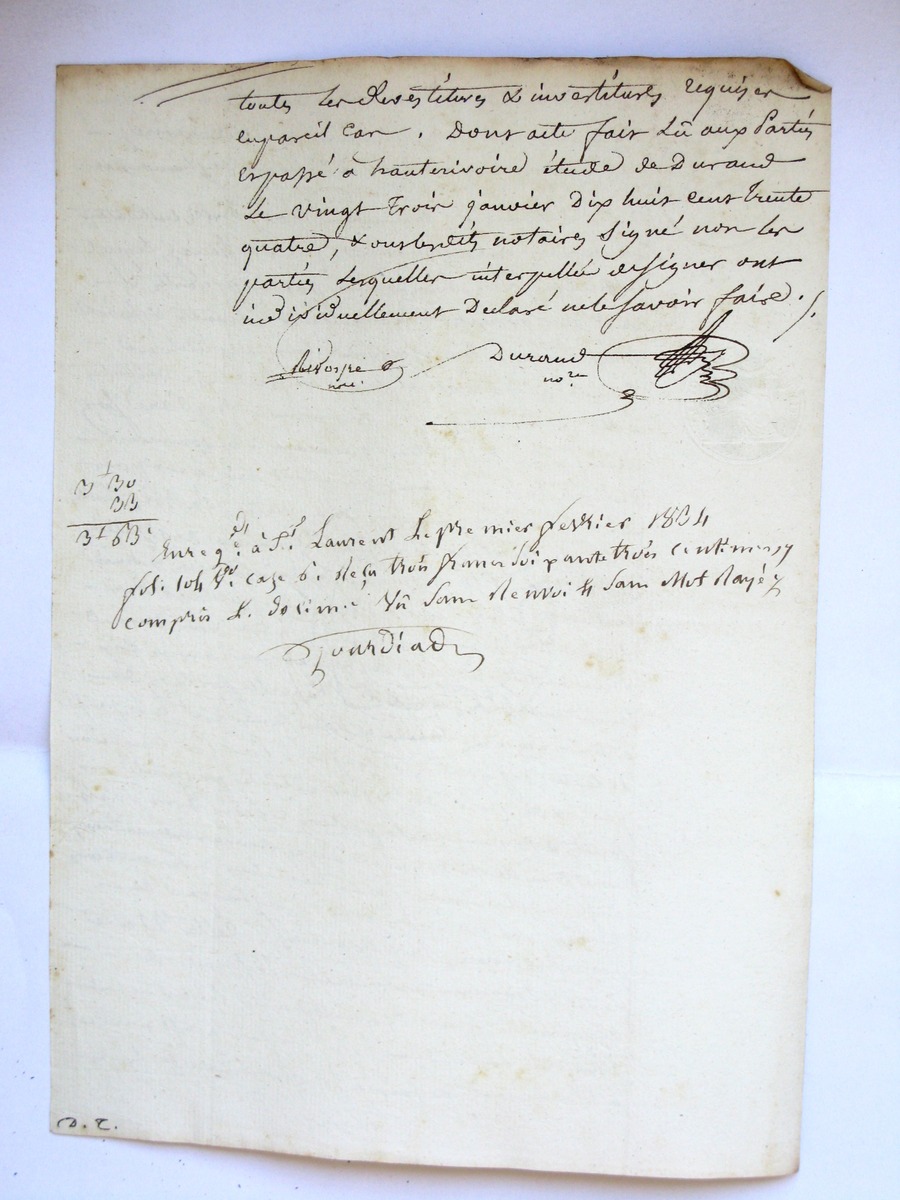 toutes les Revêtitures & investitures requises
en pareil cas. Dont acte fait Lû aux Parties
et passé à hauterivoire étude de Durand
Le vingt Trois janvier Dix huit cent trente
quatre, & ont lesdits notaires signé non les
parties lesquelles interpellées de signer ont
individuellement Declaré ne le savoir faire.
nore.
Durand
nore
3f 30
33
3f 63c
Enregé à St Laurent Le premier fevrier 1834
fol. 104 Vo. case 6. Reçu trois francs soixante trois centimes y
compris L. decime. Vû sans Renvoi & sans Mot Rayé
Gourdiad
D. T.